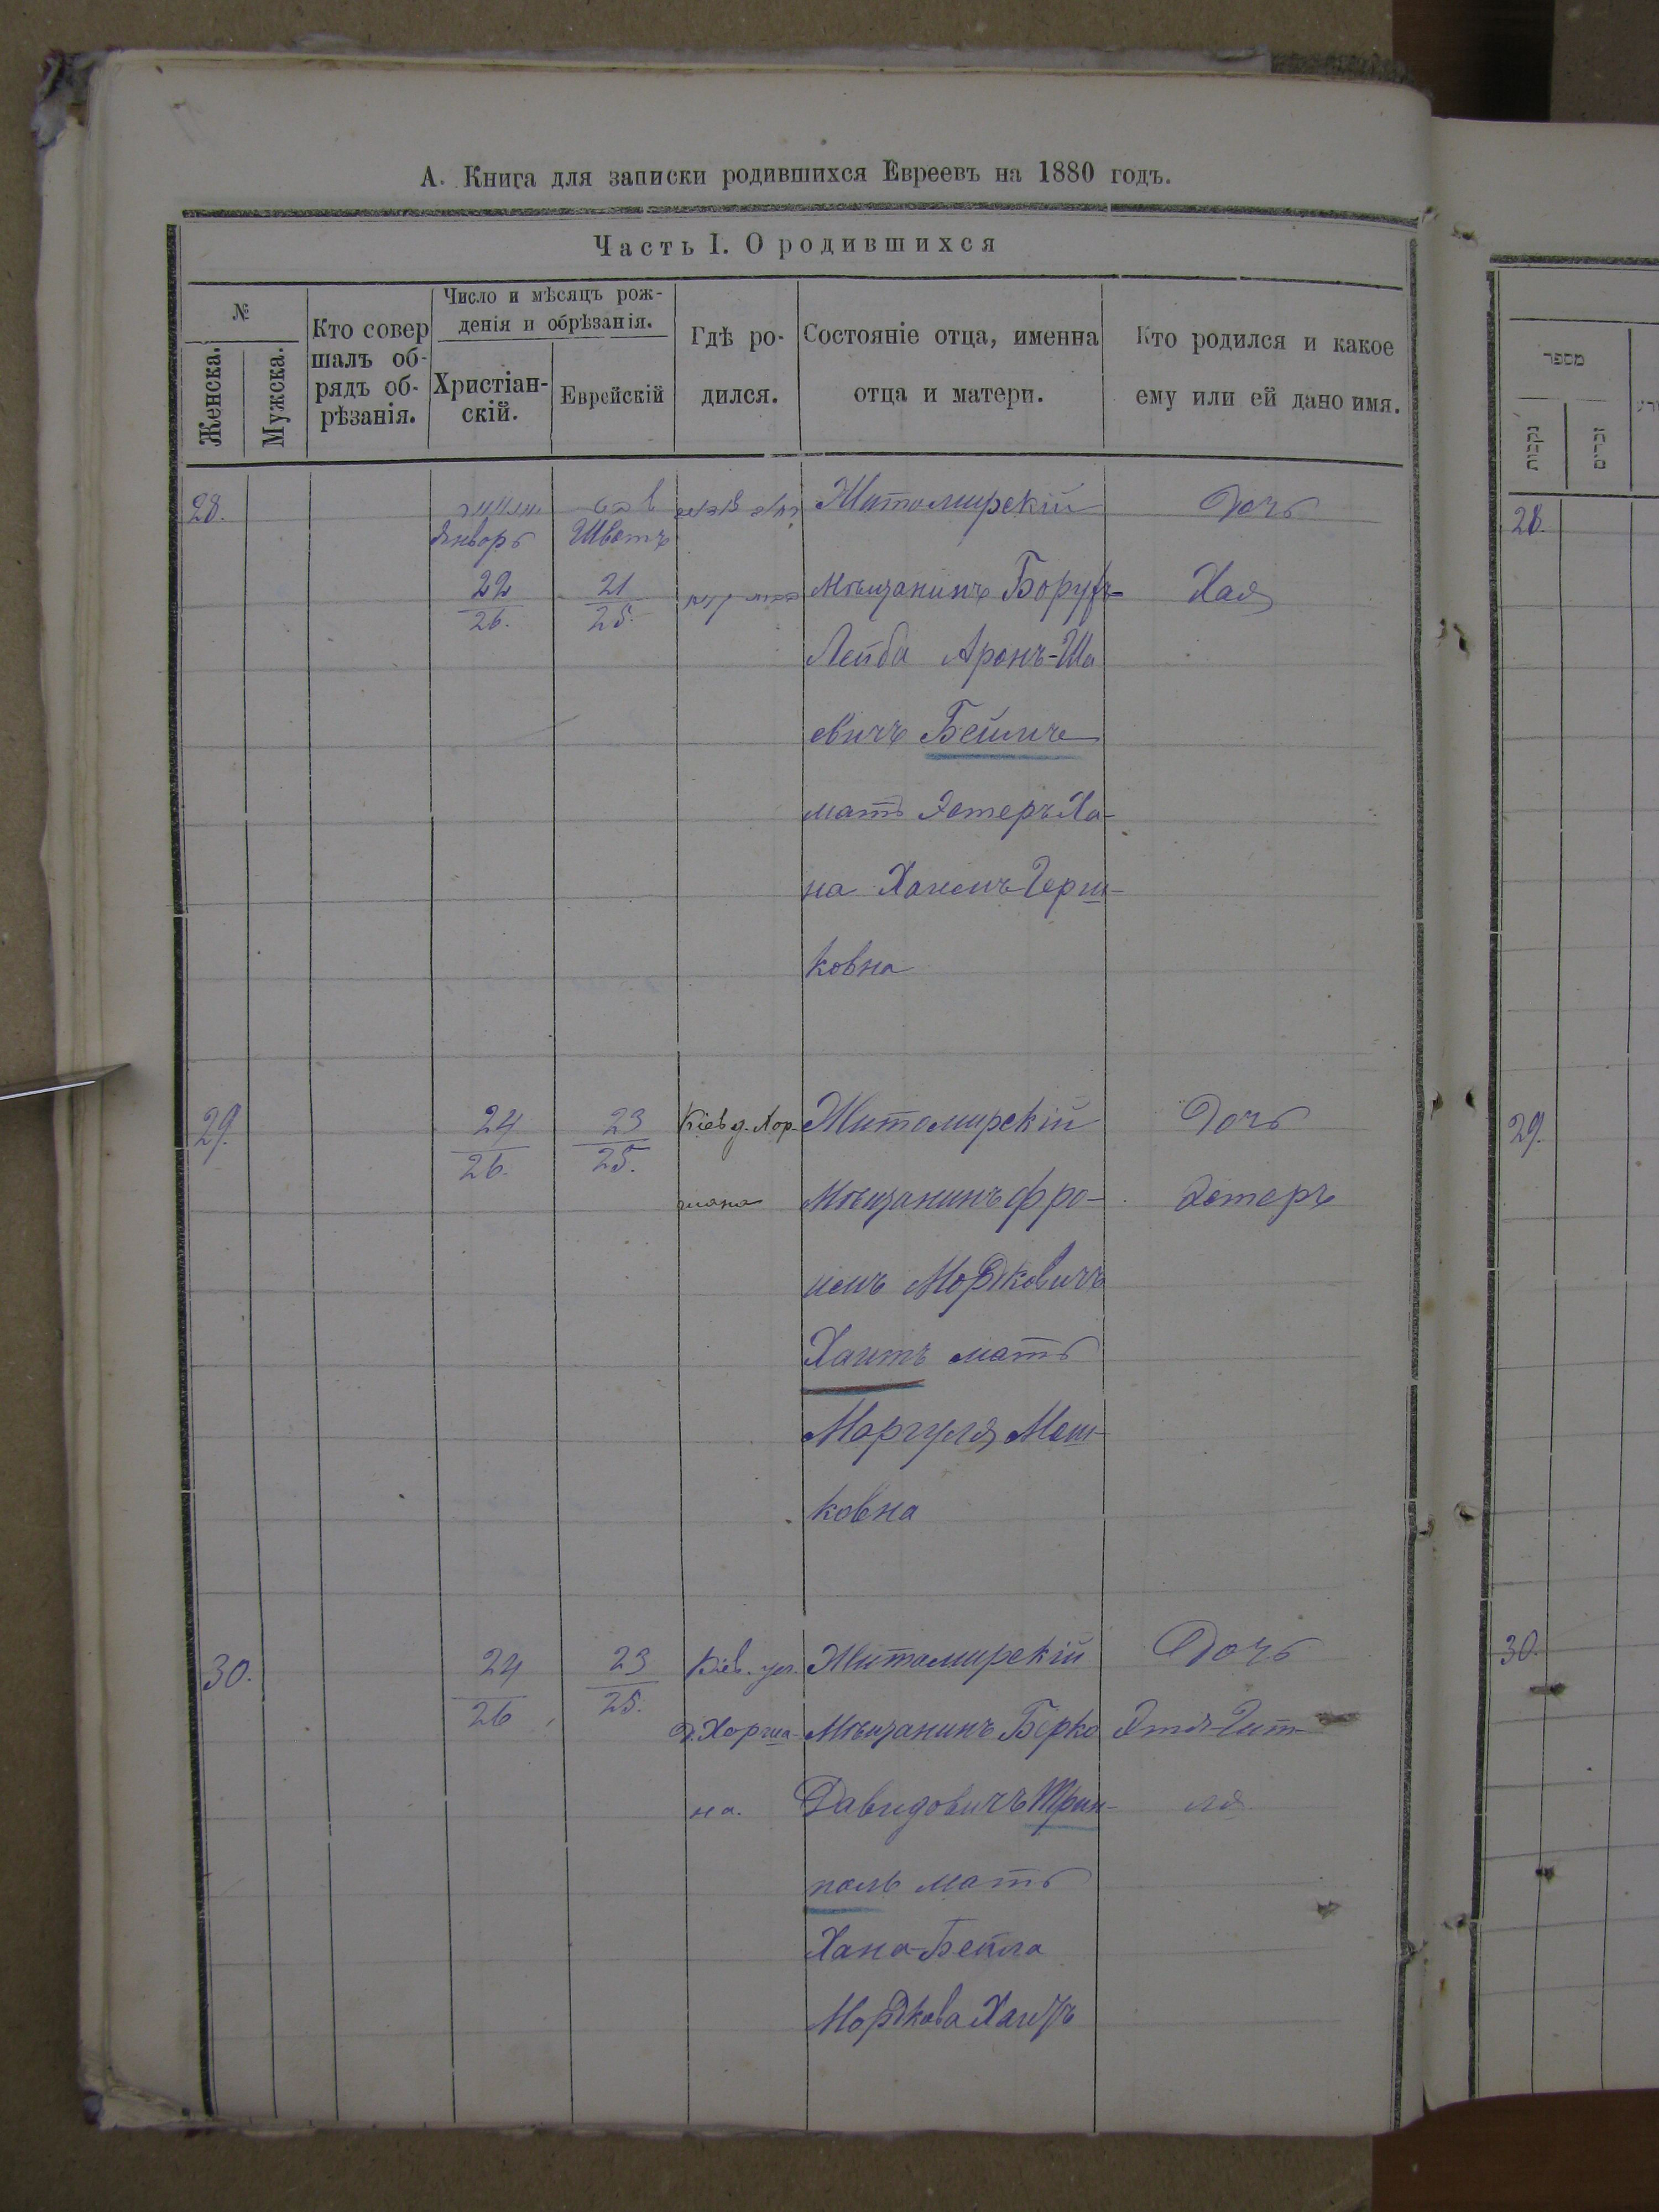 А. Книга для записки родившихся Евреевъ на 1880 годъ.
Часть I. О родившихся
№
Женска.
Мужска.
Кто совер
шалъ об-
рядъ об-
рѣзанія.
Число и мѣсяцъ рож-
денія и обрѣзанія.
Христіан-
скій.
Еврейскій
Гдѣ ро-
дился.
Состояніе отца, именна
отца и матери.
Кто родился и какое
ему или ей дано имя.
28.
Январь
22
26.
Шватъ
21
25.
Житомирскій
мѣщанинъ Борухъ-
Лейба Аронъ-Ша
евичъ Бейлинъ
мать Эстеръ Ха-
на Хаимъ-Герш-
ковна
Дочь
Хая
29.
24
26.
23
25.
Кіев у. Хор-
шана
Житомирскій
Мѣщанинъ Фро-
имъ Мордковичъ
Хаитъ мать
Маргуля Мош-
ковна
Дочь
Эстеръ
30.
24
26
23
25.
Кіев. уез.
Д. Хорша-
на.
Житомирскій
Мѣщанинъ Берко
Давидовичъ Трип-
поль мать
Хана-Бейла
Мордкова Хаитъ
Дочь
Этя-Гит-
ля
מספר
נקבות
זכרים
28.
29.
30.